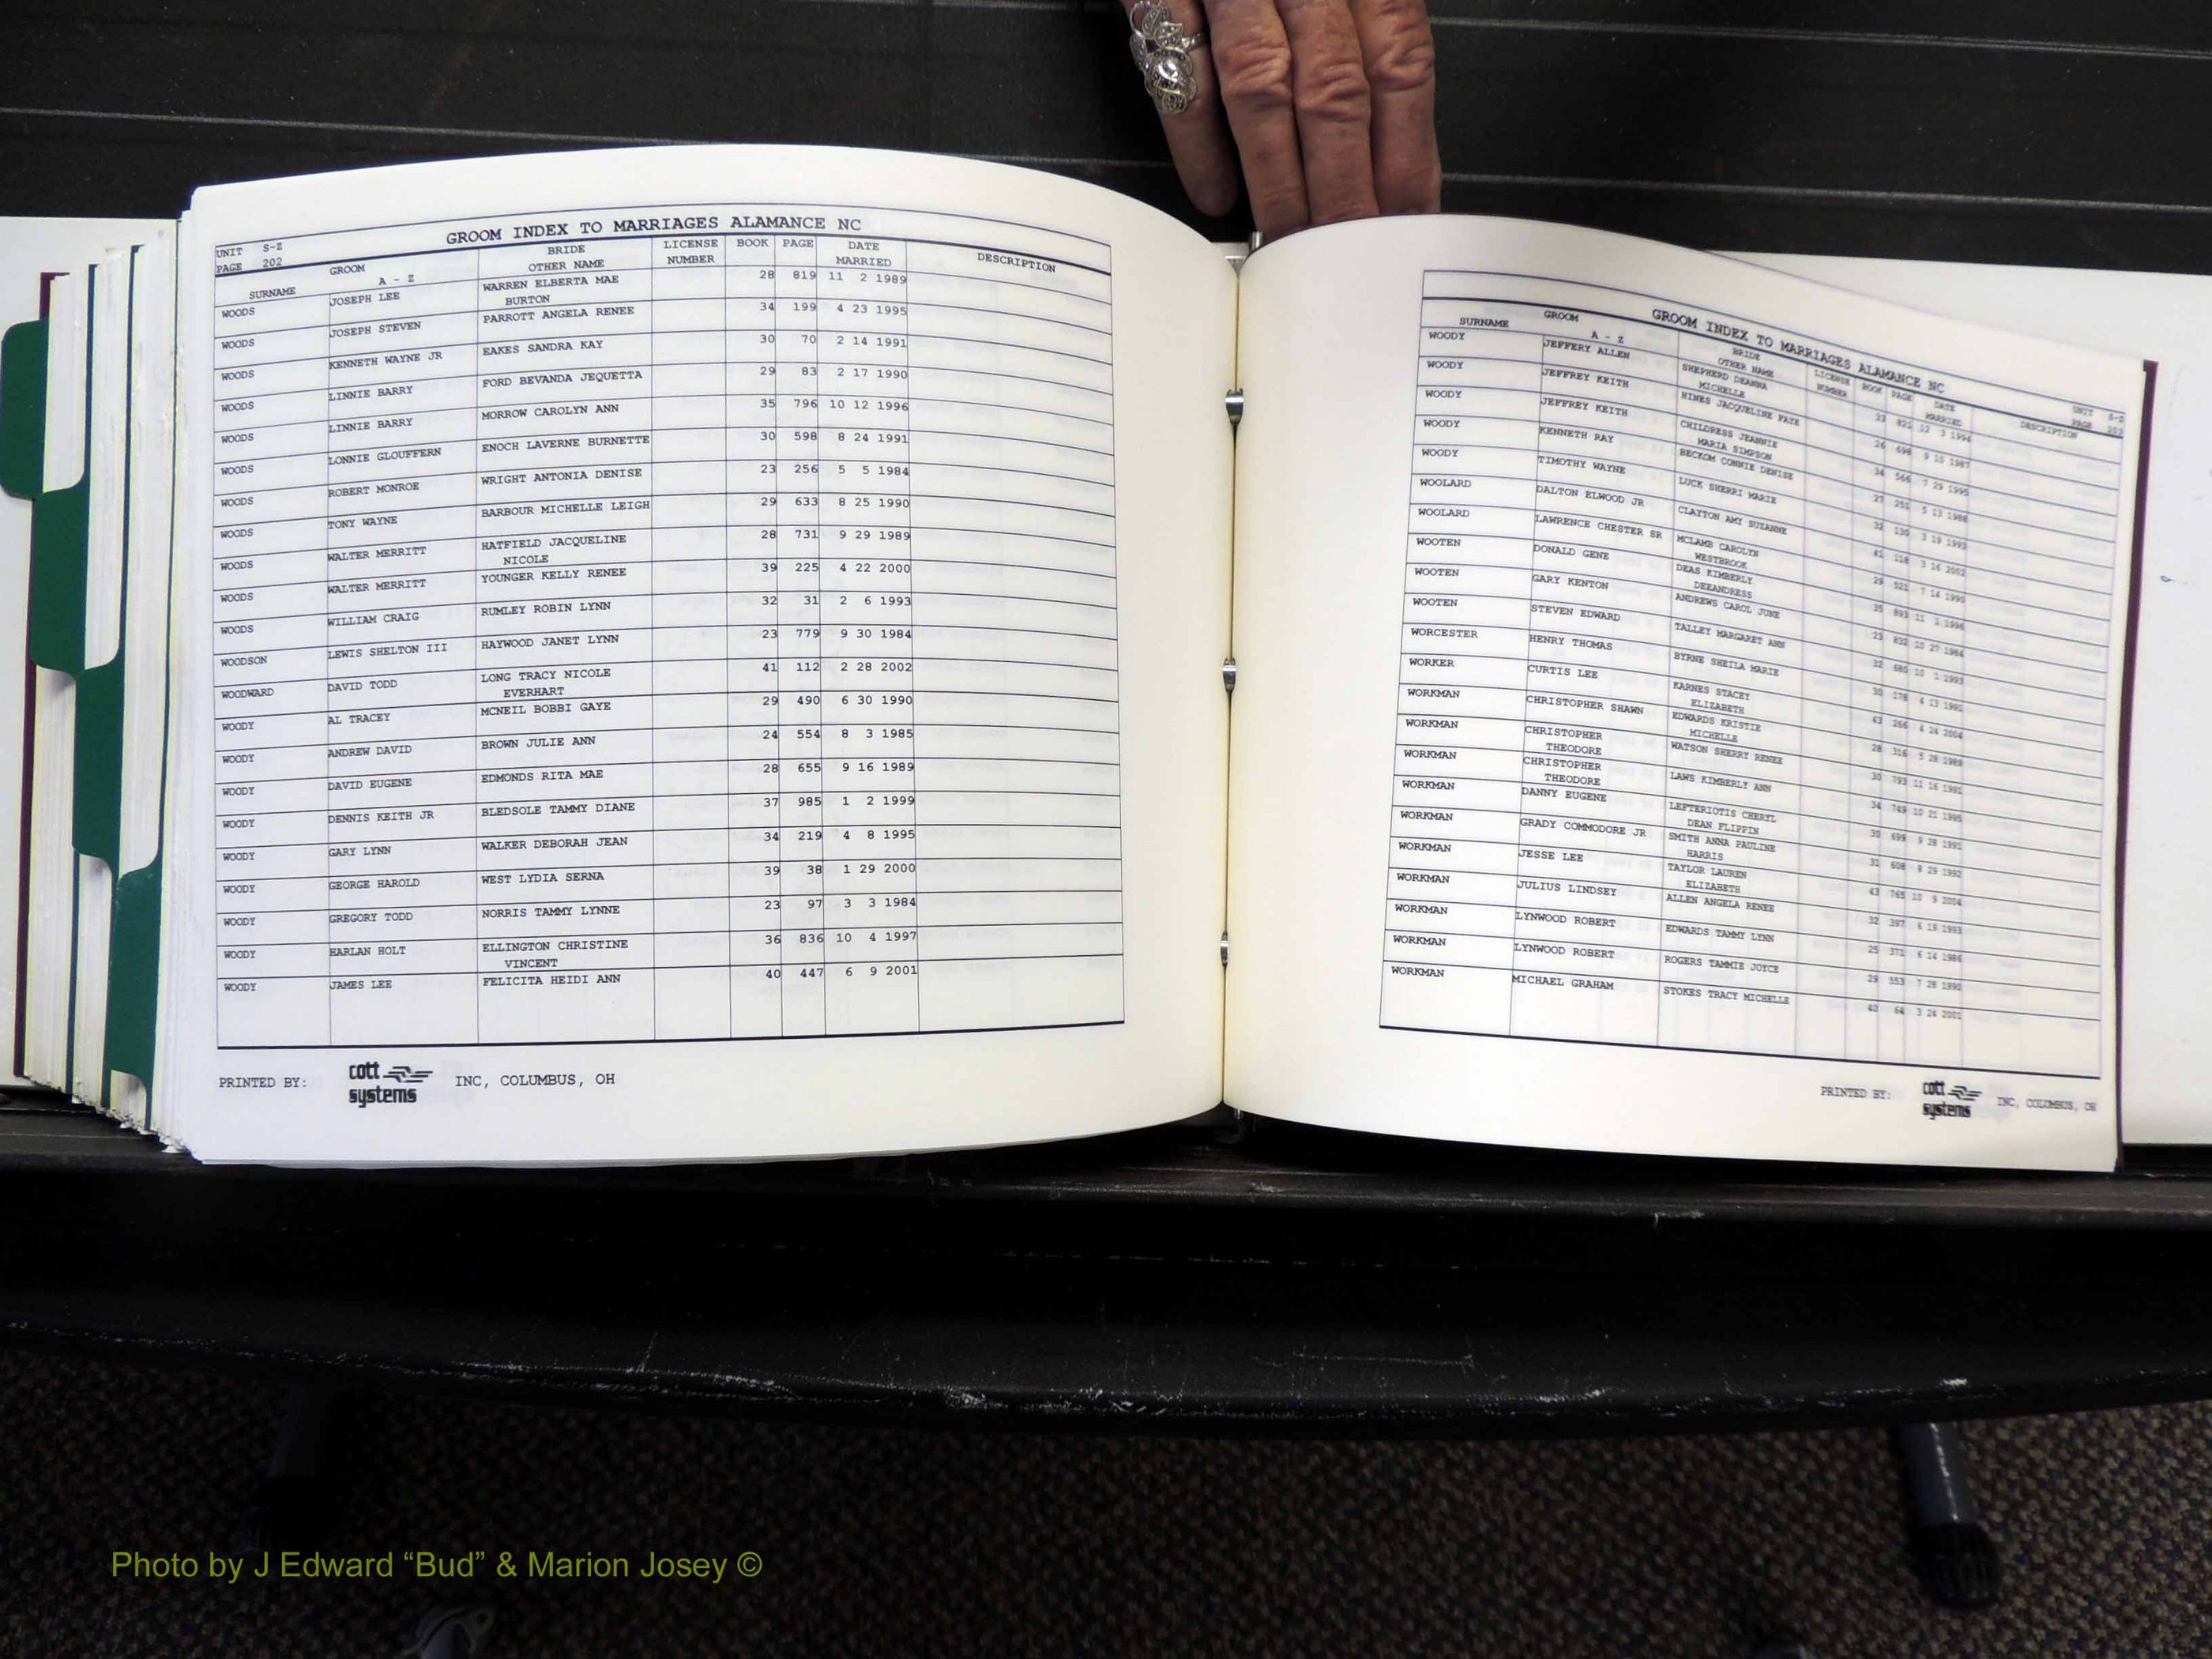 GROOM INDEX TO MARRIAGES ALAMANCE NC
UNIT S-Z
PAGE 202
SURNAME GROOM A - Z BRIDE OTHER NAME LICENSE NUMBER BOOK PAGE DATE MARRIED DESCRIPTION
WOODS JOSEPH LEE WARREN ELBERTA MAE 28 819 11 2 1989
BURTON
WOODS JOSEPH STEVEN PARROTT ANGELA RENEE 34 199 4 23 1995
WOODS KENNETH WAYNE JR EAKES SANDRA KAY 30 70 2 14 1991
WOODS LINNIE BARRY FORD BEVANDA JEQUETTA 29 83 2 17 1990
WOODS LINNIE BARRY MORROW CAROLYN ANN 35 796 10 12 1996
WOODS LONNIE GLOUFFERN ENOCH LAVERNE BURNETTE 30 598 8 24 1991
WOODS ROBERT MONROE WRIGHT ANTONIA DENISE 23 256 5 5 1984
WOODS TONY WAYNE BARBOUR MICHELLE LEIGH 29 633 8 25 1990
WOODS WALTER MERRITT HATFIELD JACQUELINE 28 731 9 29 1989
NICOLE
WOODS WALTER MERRITT YOUNGER KELLY RENEE 39 225 4 22 2000
WOODS WILLIAM CRAIG RUMLEY ROBIN LYNN 32 31 2 6 1993
WOODSON LEWIS SHELTON III HAYWOOD JANET LYNN 23 779 9 30 1984
WOODWARD DAVID TODD LONG TRACY NICOLE 41 112 2 28 2002
EVERHART
WOODY AL TRACEY MCNEIL BOBBI GAYE 29 490 6 30 1990
WOODY ANDREW DAVID BROWN JULIE ANN 24 554 8 3 1985
WOODY DAVID EUGENE EDMONDS RITA MAE 28 655 9 16 1989
WOODY DENNIS KEITH JR BLEDSOLE TAMMY DIANE 37 985 1 2 1999
WOODY GARY LYNN WALKER DEBORAH JEAN 34 219 4 8 1995
WOODY GEORGE HAROLD WEST LYDIA SERNA 39 38 1 29 2000
WOODY GREGORY TODD NORRIS TAMMY LYNNE 23 97 3 3 1984
WOODY HARLAN HOLT ELLINGTON CHRISTINE 36 836 10 4 1997
VINCENT
WOODY JAMES LEE FELICITA HEIDI ANN 40 447 6 9 2001
PRINTED BY: cott systems INC, COLUMBUS, OH
GROOM INDEX TO MARRIAGES ALAMANCE NC
UNIT S-Z
PAGE 203
SURNAME GROOM A - Z BRIDE OTHER NAME LICENSE NUMBER BOOK PAGE DATE MARRIED DESCRIPTION
WOODY JEFFERY ALLEN SHEPHERD DEANNA 33 821 12 3 1994
MICHELLE
WOODY JEFFREY KEITH HINES JACQUELINE FAYE 26 698
WOODY JEFFREY KEITH CHILDRESS JEANNIE 34 566 7 29 1995
MARIA SIMPSON
WOODY KENNETH RAY BECKOM CONNIE DENISE 27 251 5 13 1988
WOODY TIMOTHY WAYNE LUCK SHERRI MARIE 32 130 3 19 1993
WOOLARD DALTON ELWOOD JR CLAYTON AMY SUZANNE 41 118 3 16 2002
WOOLARD LAWRENCE CHESTER SR MCLAMB CAROLYN 29 521 7 14 1990
WESTBROOK
WOOTEN DONALD GENE DEAS KIMBERLY 35 893 11 1 1996
DEEANDRESS
WOOTEN GARY KENTON ANDREWS CAROL JUNE 23 832 10 27 1984
WOOTEN STEVEN EDWARD TALLEY MARGARET ANN 32 680 10 1 1993
WORCESTER HENRY THOMAS BYRNE SHEILA MARIE 30 178 4 13 1991
WORKER CURTIS LEE KARNES STACEY 43 266 4 24 2004
ELIZABETH
WORKMAN CHRISTOPHER SHAWN EDWARDS KRISTIE 28 316 5 28 1989
MICHELLE
WORKMAN CHRISTOPHER WATSON SHERRY RENEE 30 793 11 16 1991
THEODORE
WORKMAN CHRISTOPHER LAWS KIMBERLY ANN 34 749 10 21 1995
THEODORE
WORKMAN DANNY EUGENE LEFTERIOTIS CHERYL 30 699 9 28 1991
DEAN FLIPPIN
WORKMAN GRADY COMMODORE JR SMITH ANNA PAULINE 31 608 8 29 1992
HARRIS
WORKMAN JESSE LEE TAYLOR LAUREN 43 765 10 9 2004
ELIZABETH
WORKMAN JULIUS LINDSEY ALLEN ANGELA RENEE 32 397 6 19 1993
WORKMAN LYNWOOD ROBERT EDWARDS TAMMY LYNN 25 371 6 14 1986
WORKMAN LYNWOOD ROBERT ROGERS TAMMIE JOYCE 29 553 7 28 1990
WORKMAN MICHAEL GRAHAM STOKES TRACY MICHELLE 40 64 3 24 2001
PRINTED BY: cott systems INC, COLUMBUS, OH
Photo by J Edward “Bud” & Marion Josey ©